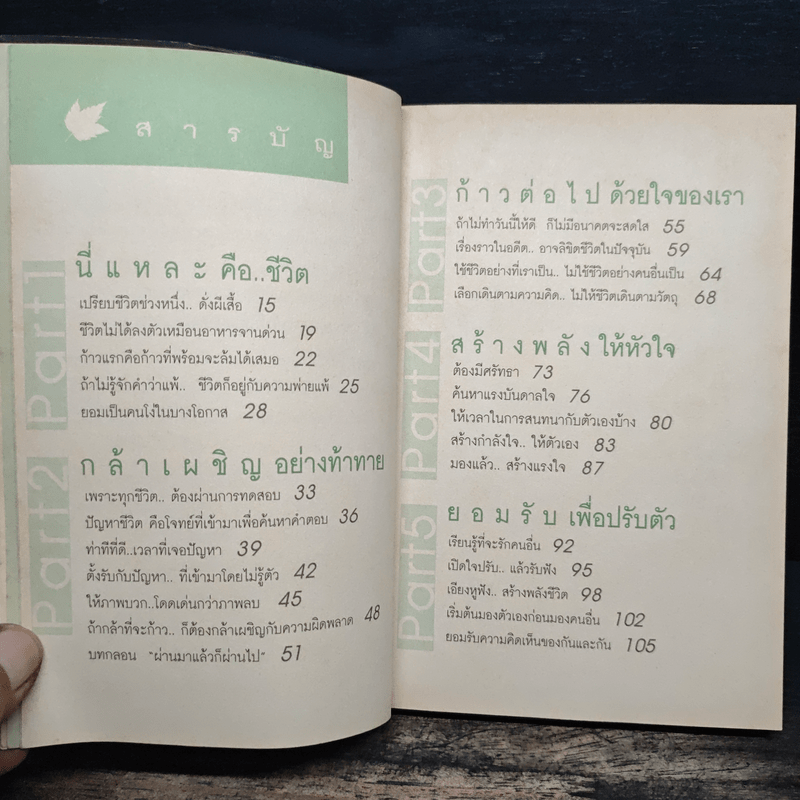 สารบัญ
Part1
นี่แหละ คือ..ชีวิต
เปรียบชีวิตช่วงหนึ่ง.. ดั่งผีเสื้อ 15
ชีวิตไม่ได้ลงตัวเหมือนอาหารจานด่วน 19
ก้าวแรกคือก้าวที่พร้อมจะล้มได้เสมอ 22
ถ้าไม่รู้จักคำว่าแพ้.. ชีวิตก็อยู่กับความพ่ายแพ้ 25
ยอมเป็นคนโง่ในบางโอกาส 28
Part2
กล้าเผชิญ อย่างท้าทาย
เพราะทุกชีวิต.. ต้องผ่านการทดสอบ 33
ปัญหาชีวิต คือโจทย์ที่เข้ามาเพื่อค้นหาคำตอบ 36
ท่าทีที่ดี..เวลาที่เจอปัญหา 39
ตั้งรับกับปัญหา.. ที่เข้ามาโดยไม่รู้ตัว 42
ให้ภาพบวก..โดดเด่นกว่าภาพลบ 45
ถ้ากล้าที่จะก้าว.. ก็ต้องกล้าเผชิญกับความผิดพลาด 48
บทกลอน "ผ่านมาแล้วก็ผ่านไป" 51
Part3
ก้าวต่อไป ด้วยใจของเรา
ถ้าไม่ทำวันนี้ให้ดี ก็ไม่มีอนาคตจะสดใส 55
เรื่องราวในอดีต.. อาจลิขิตชีวิตในปัจจุบัน 59
ใช้ชีวิตอย่างที่เราเป็น.. ไม่ใช้ชีวิตอย่างคนอื่นเป็น 64
เลือกเดินตามความคิด.. ไม่ให้ชีวิตเดินตามวัตถุ 68
Part4
สร้างพลัง ให้หัวใจ
ต้องมีศรัทธา 73
ค้นหาแรงบันดาลใจ 76
ให้เวลาในการสนทนากับตัวเองบ้าง 80
สร้างกำลังใจ.. ให้ตัวเอง 83
มองแล้ว.. สร้างแรงใจ 87
Part5
ยอมรับ เพื่อปรับตัว
เรียนรู้ที่จะรักคนอื่น 92
เปิดใจปรับ.. แล้วรับฟัง 95
เอียงหูฟัง.. สร้างพลังชีวิต 98
เริ่มต้นมองตัวเองก่อนมองคนอื่น 102
ยอมรับความคิดเห็นของกันและกัน 105